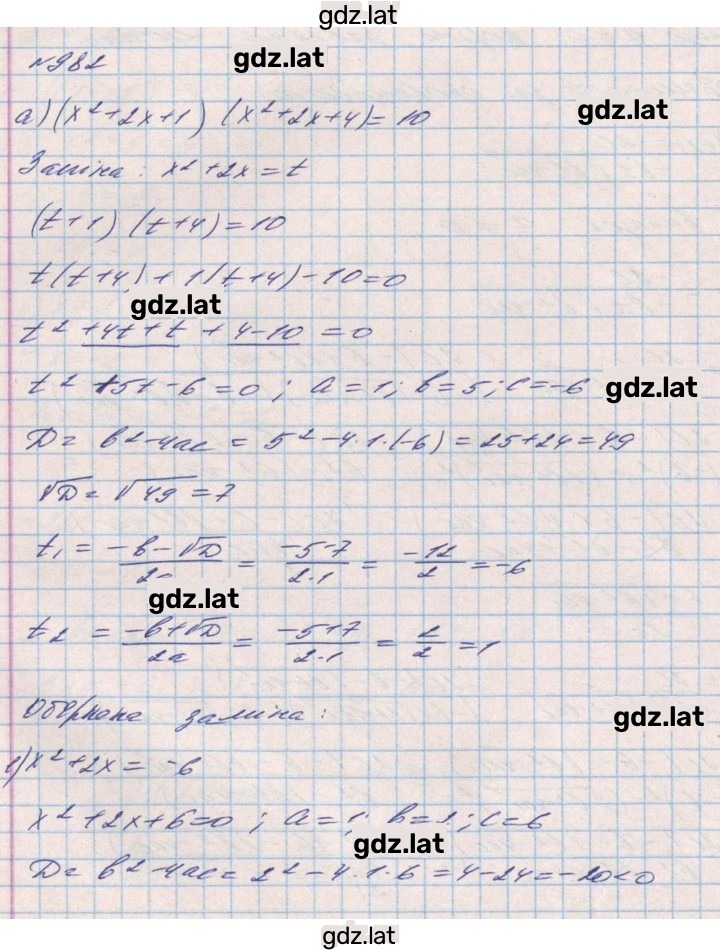 gdz.lat
№982
gdz.lat
а) (x²+2x+1) (x²+2x+4)=10
gdz.lat
Заміна: x²+2x=t
(t+1) (t+4)=10
t(t+4)+1(t+4)-10=0
gdz.lat
t² +4t+t +4-10 =0
t²+5t-6=0; a=1; b=5; c=-6
gdz.lat
D= b²-4ac = 5²-4·1·(-6)=25+24=49
√D=√49=7
t₁ = (-b-√D)/2a = (-5-7)/(2·1) = -12/2 = -6
gdz.lat
t₂ = (-b+√D)/2a = (-5+7)/(2·1) = 2/2 = 1
Обернена заміна:
gdz.lat
1) x²+2x= -6
x²+2x+6=0; a=1; b=2; c=6
gdz.lat
D= b²-4ac= 2²-4·1·6=4-24=-20<0
gdz.lat